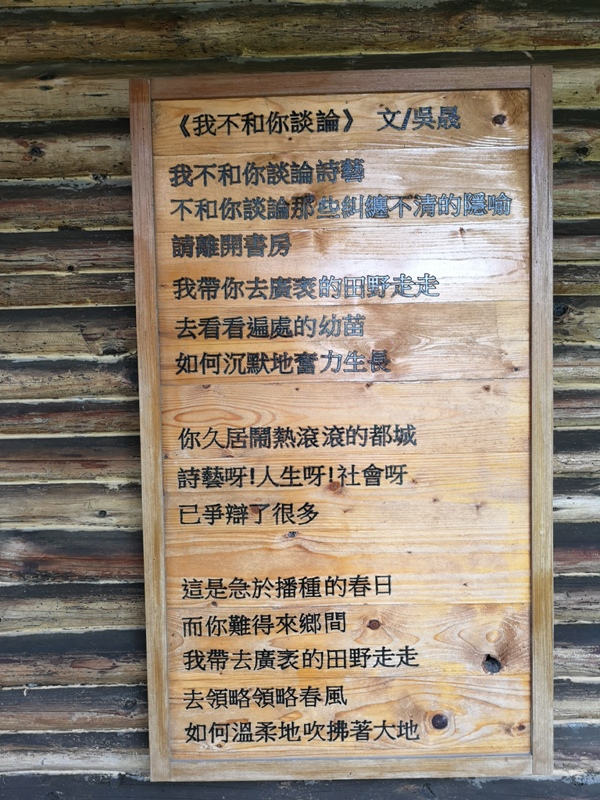 《我不和你談論》 文/吳晟
我不和你談論詩藝
不和你談論那些糾纏不清的隱喻
請離開書房
我帶你去廣袤的田野走走
去看看遍處的幼苗
如何沉默地奮力生長
你久居鬧熱滾滾的都城
詩藝呀!人生呀!社會呀
已爭辯了很多
這是急於播種的春日
而你難得來鄉間
我帶去廣袤的田野走走
去領略領略春風
如何溫柔地吹拂著大地